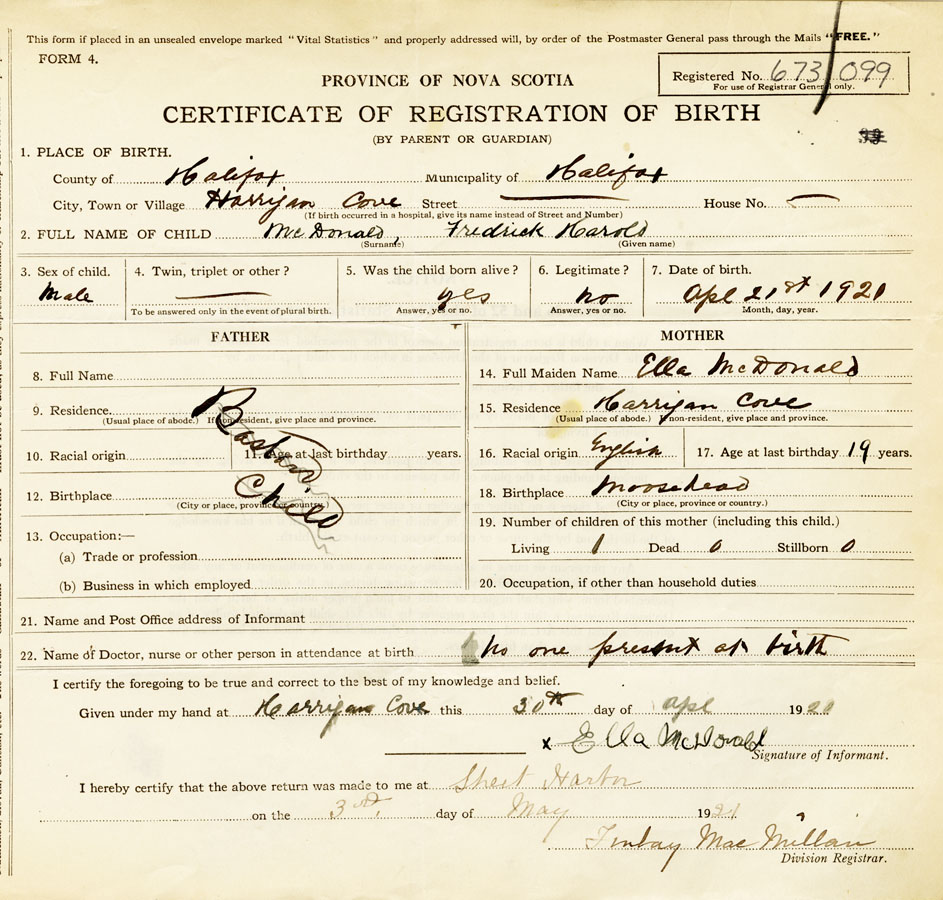 This form if placed in an unsealed envelope marked "Vital Statistics" and properly addressed will, by order of the Postmaster General pass through the Mails "FREE."
FORM 4.
PROVINCE OF NOVA SCOTIA
Registered No. 673 099
For use of Registrar General only.
CERTIFICATE OF REGISTRATION OF BIRTH
(BY PARENT OR GUARDIAN)
1. PLACE OF BIRTH.
County of Halifax Municipality of Halifax
City, Town or Village Harrigan Cove Street House No.
(If birth occurred in a hospital, give its name instead of Street and Number)
2. FULL NAME OF CHILD McDonald, Fredrick Harold
(Surname) (Given name)
3. Sex of child. 4. Twin, triplet or other? 5. Was the child born alive? 6. Legitimate? 7. Date of birth.
Male yes no Apl 21st 1921
To be answered only in the event of plural birth. Answer, yes or no. Answer, yes or no. Month, day, year.
FATHER MOTHER
8. Full Name 14. Full Maiden Name Ella McDonald
9. Residence 15. Residence Harrigan Cove
(Usual place of abode.) If non-resident, give place and province. (Usual place of abode.) If non-resident, give place and province.
Bastard
10. Racial origin 11. Age at last birthday years. 16. Racial origin English 17. Age at last birthday 19 years.
Child
12. Birthplace 18. Birthplace Moosehead
(City or place, province or country.) (City or place, province or country.)
13. Occupation:— 19. Number of children of this mother (including this child.)
(a) Trade or profession Living 1 Dead 0 Stillborn 0
(b) Business in which employed 20. Occupation, if other than household duties
21. Name and Post Office address of Informant
22. Name of Doctor, nurse or other person in attendance at birth No one present at birth
I certify the foregoing to be true and correct to the best of my knowledge and belief.
Given under my hand at Harrigan Cove this 30th day of Apl 1921
x Ella McDonald
Signature of Informant.
I hereby certify that the above return was made to me at Sheet Harbor
on the 3rd. day of May 1921
Finlay MacMillan
Division Registrar.